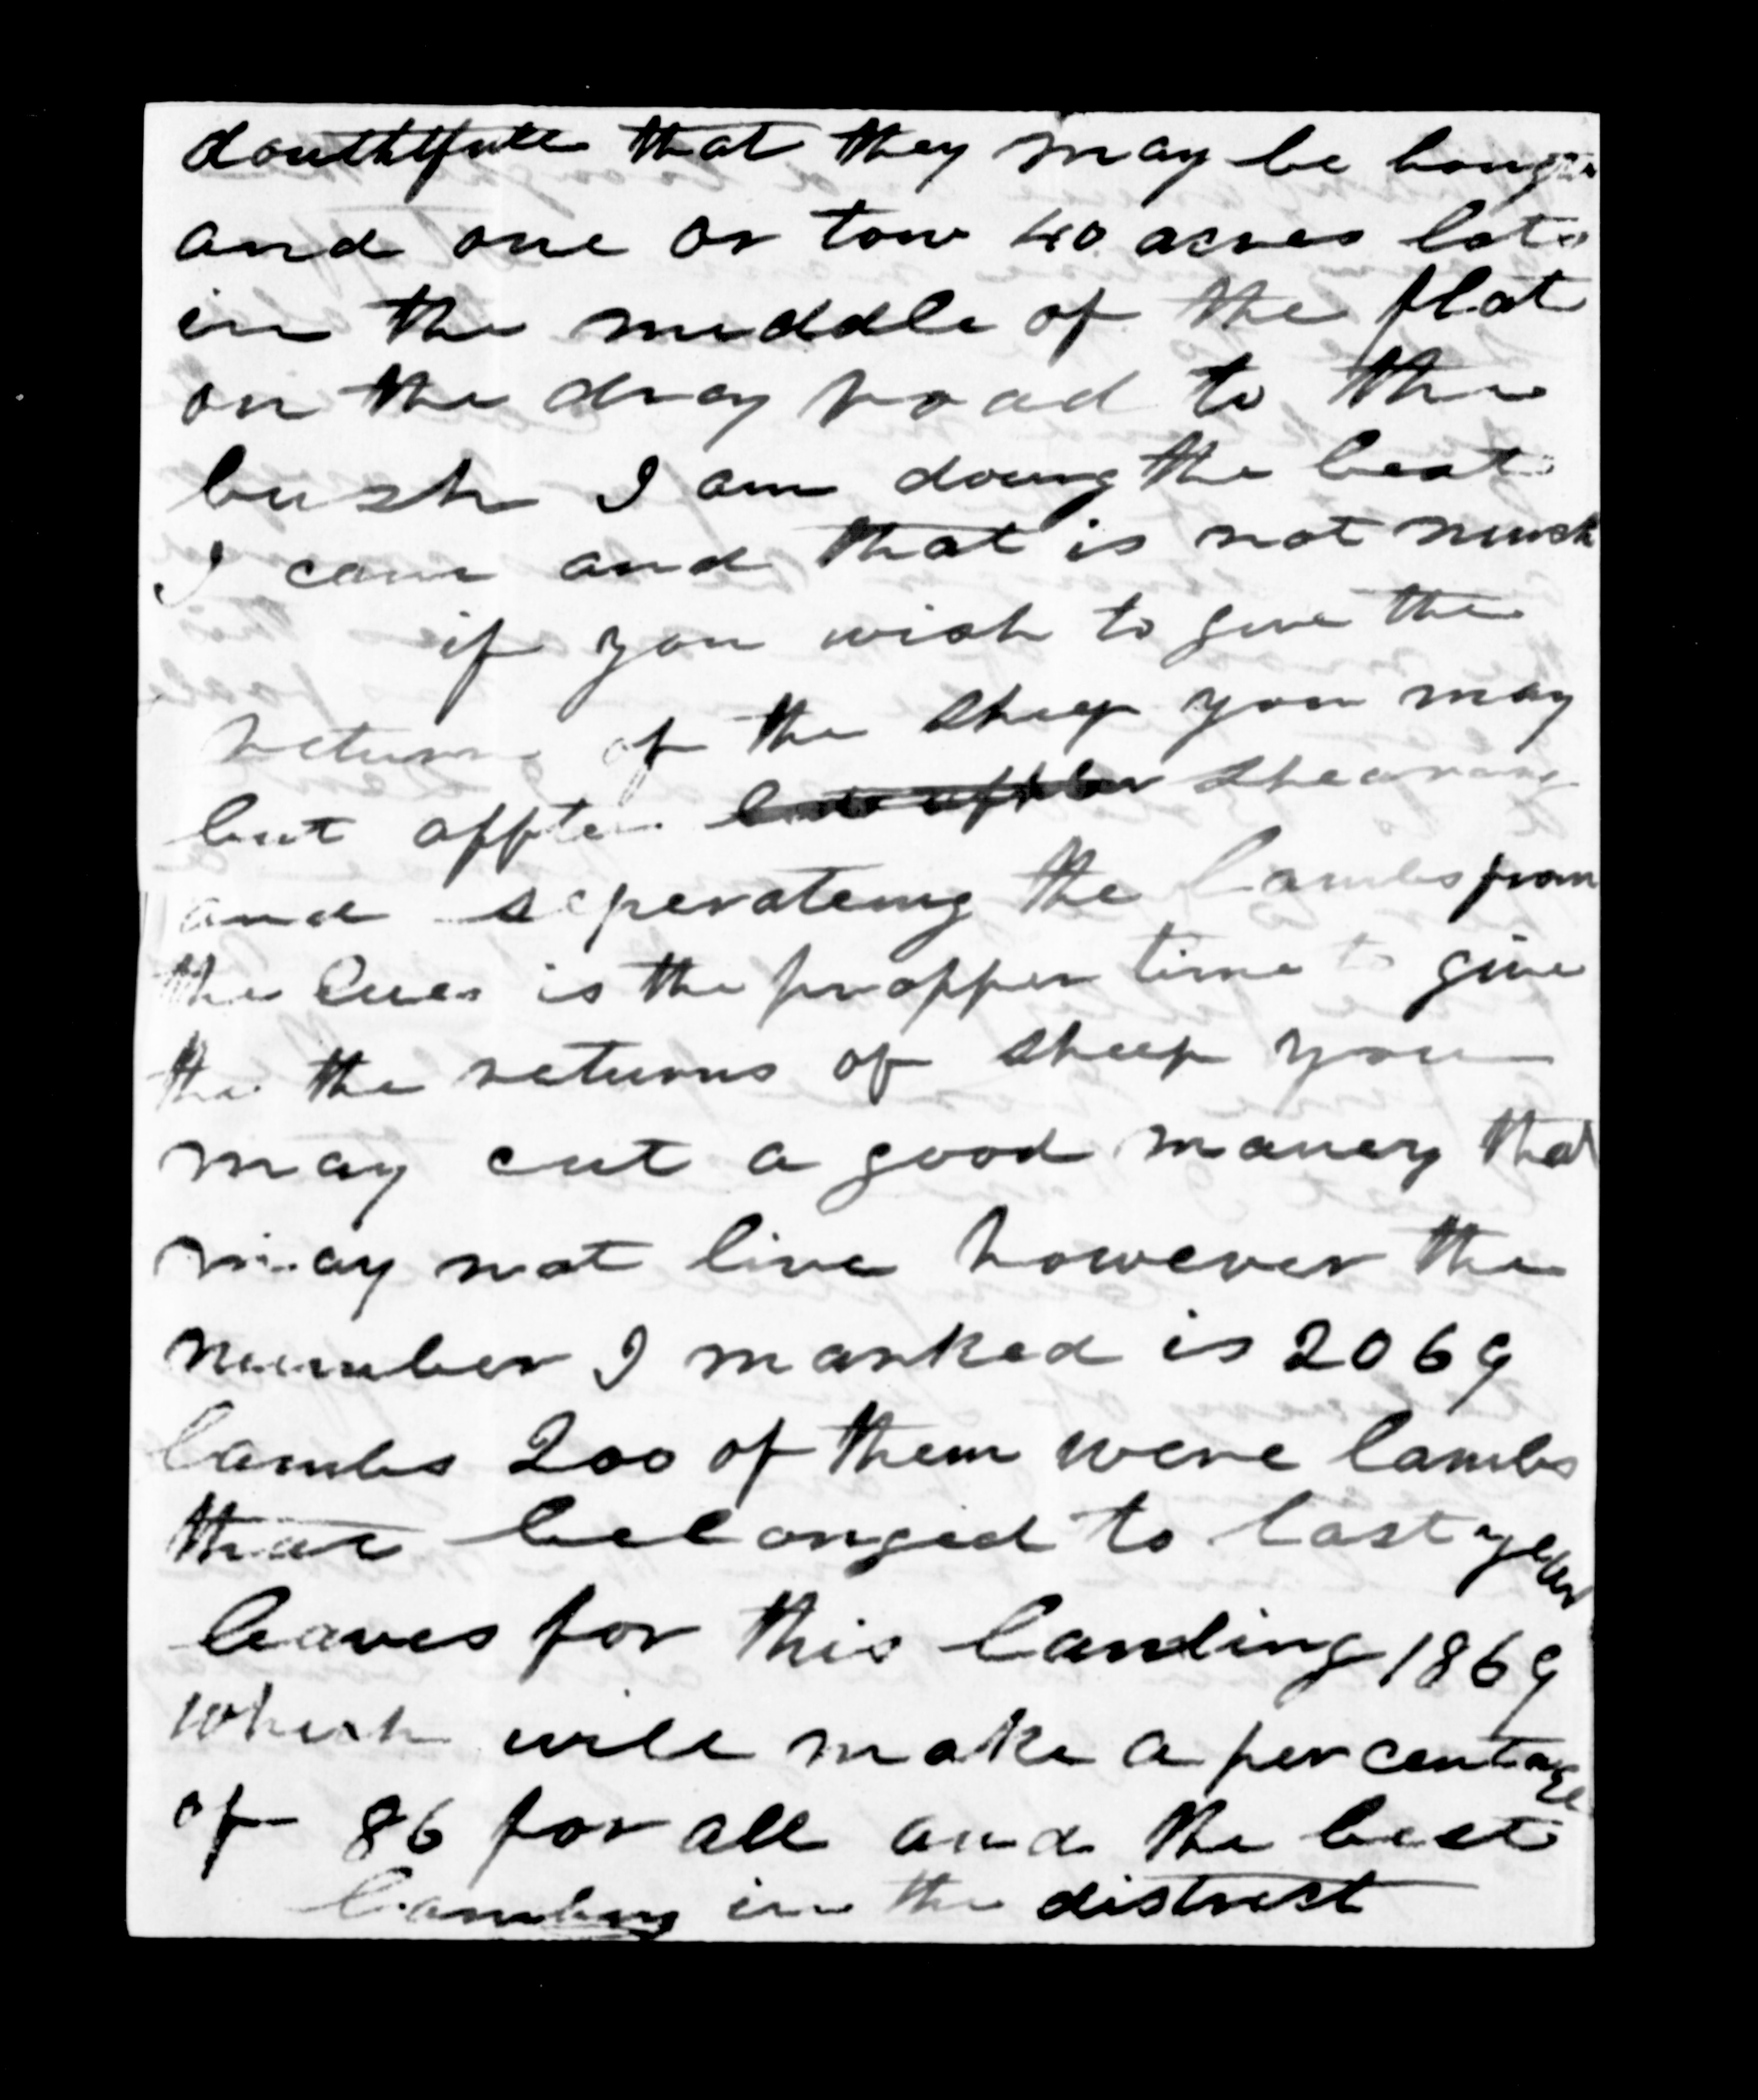 douthtfull that they may be
and one or tow 40 acres lots
in the meddle of the flat
on the dray road to the
bush I am doung the best
I cane and that is not mush
if you wish to give the
returns of the sheep you may
but affter shearing
and seperateing the lambs from
the Eues is the propper time to give
the the returns of sheep you
may cut a good maney that
may not live however the
number I marked is 2069
lambs 200 of them were lambs
that belonged to last year
leaves for this lambing 1869
which will make a percentage
of 86 for all and the best
lambing in the distrest